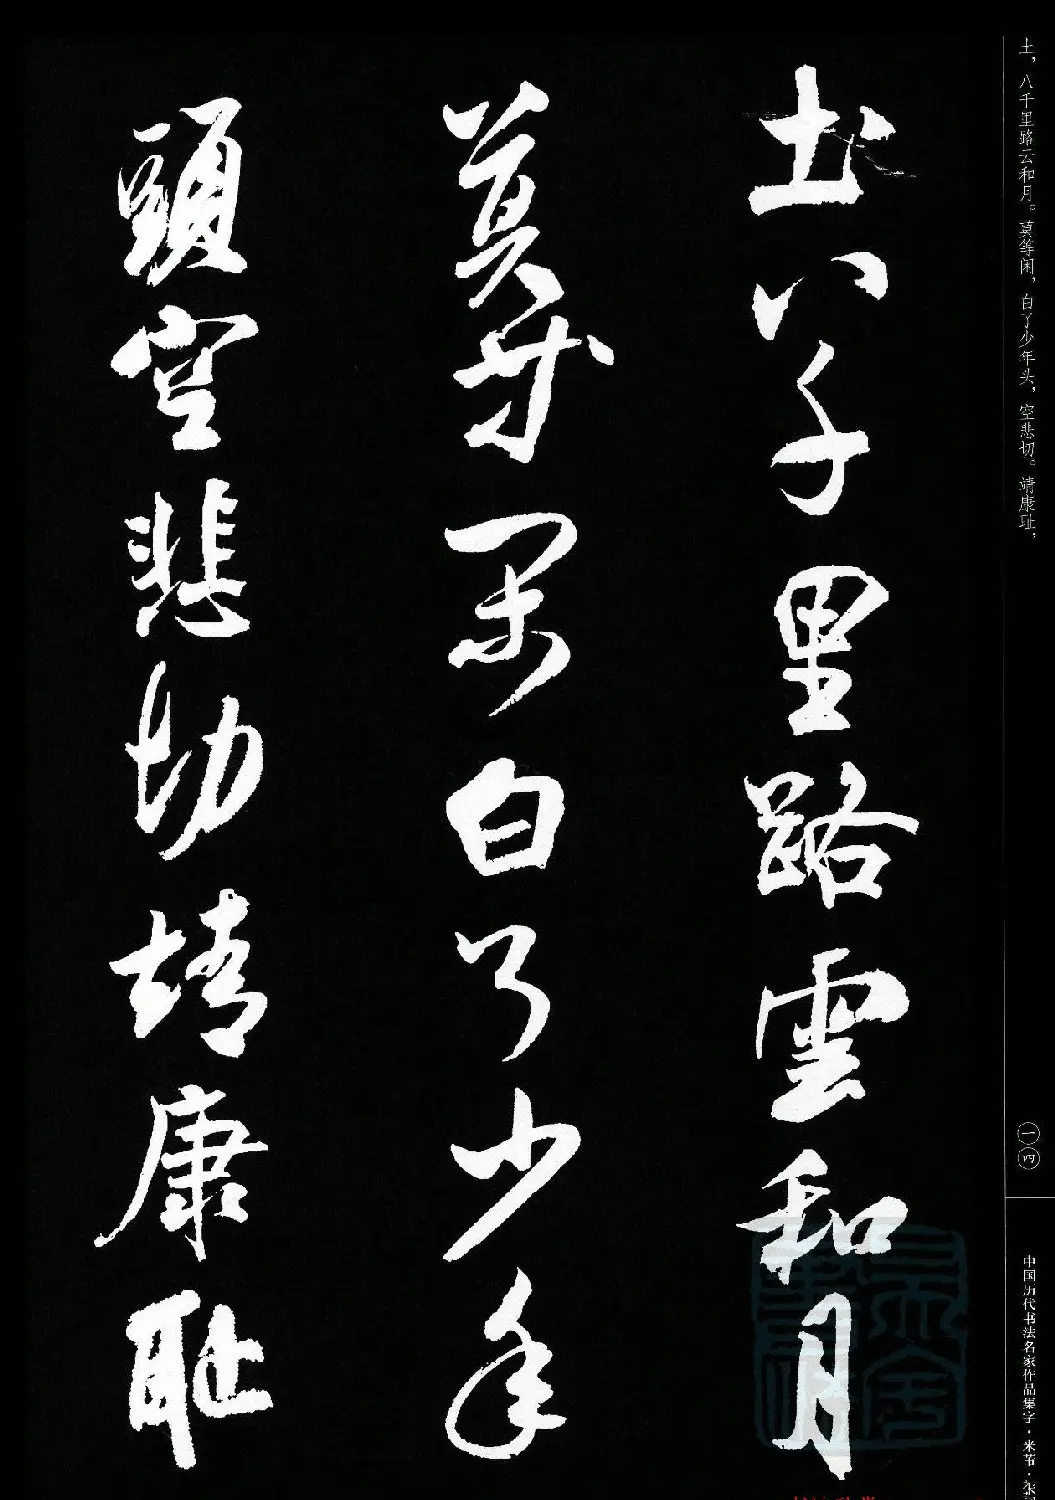 土，八千里路云和月。莫等闲，白了少年头，空悲切。靖康耻，
一四
中国历代书法名家作品集字·米芾·
土八千里路雲和月
莫等閑白了少年
頭空悲切靖康耻